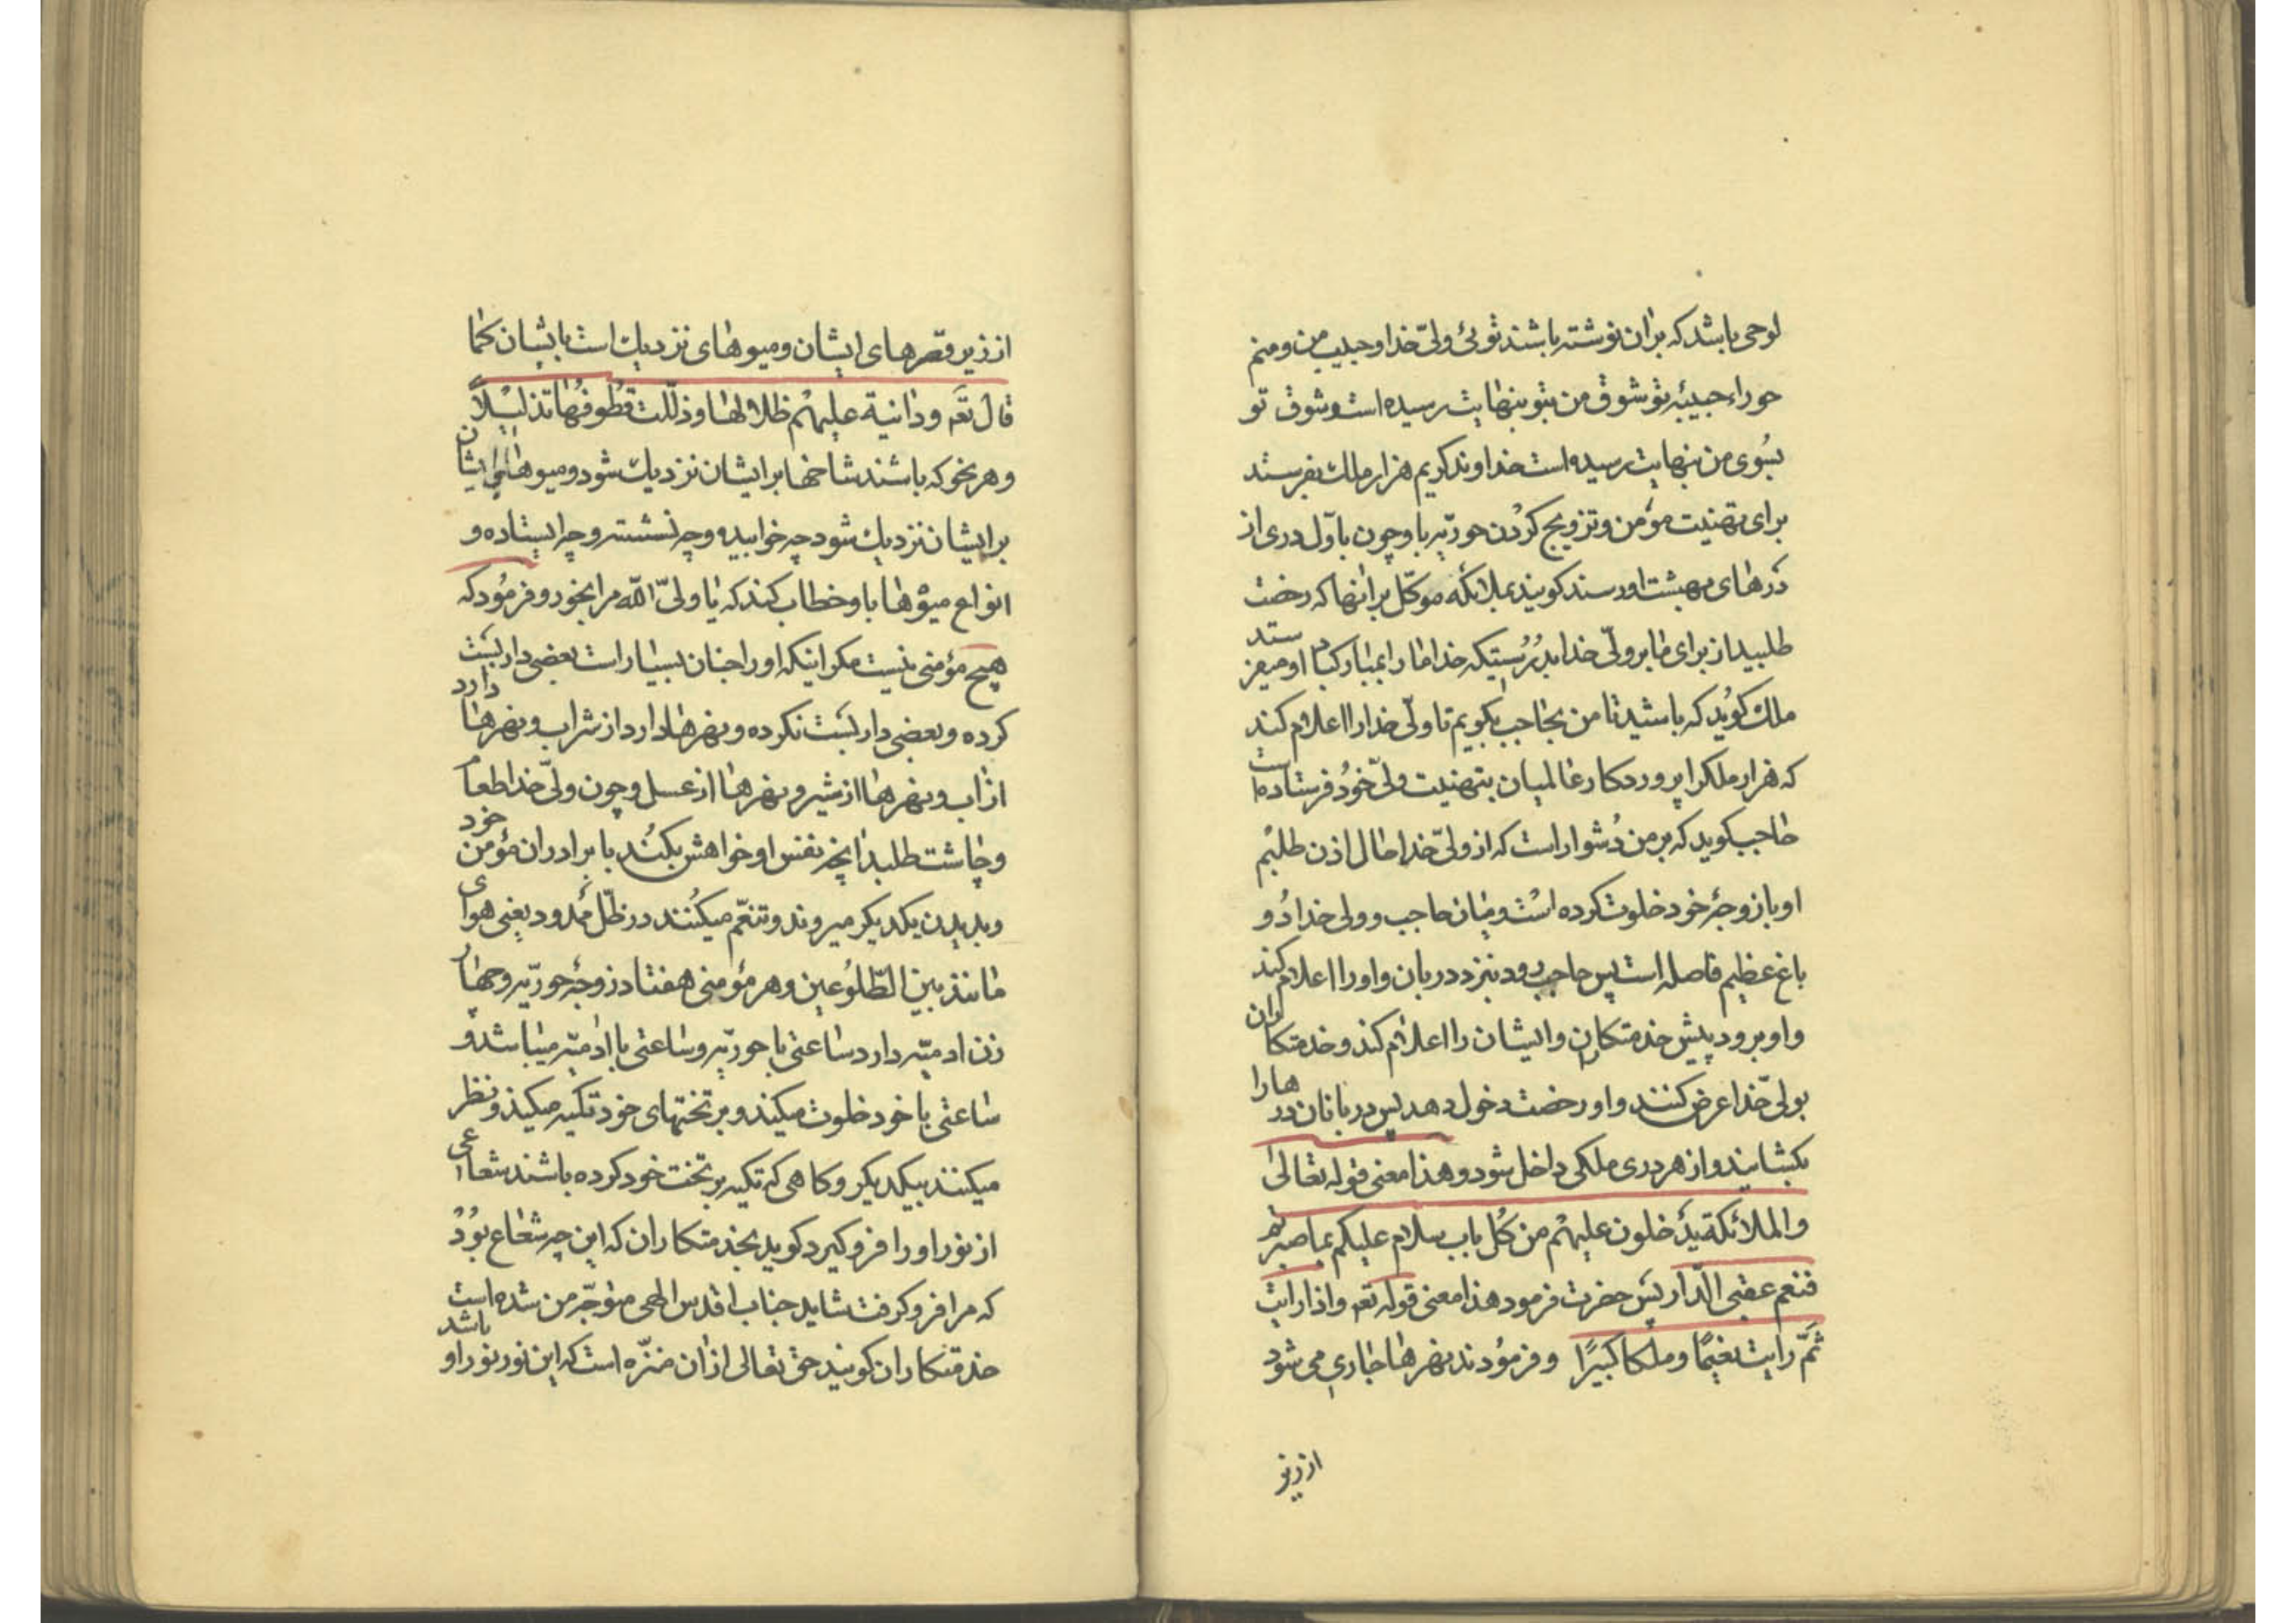 لوحی باشد که بران نوشته باشند توئی ولیّ خدا و حبیب من و منم
حوراء حبیبهٔ تو شوق من بتو بنهایت رسیده است و شوق تو
بسُوی من بنهایت رسیده است خداوند کریم هزار ملک بفرستد
برای تهنیت مؤمن و تزویج کردن حوریّه باو چون باوّل دری از
درهای بهشت او رسند کویند بملائکه موکّل برانها که رخصت
طلبید از برای ما بر ولیّ خدا بدرُستیکه خدا ما را بمبارکباد او میفرستد
ملک کوید که باشید تا من بحاجب بکویم تا ولیّ خدا را اعلام کند
که هزار ملکرا پروردکار عالمیان بتهنیت ولیّ خود فرستاده است
حاجب کوید که بر من دُشوار است که از ولیّ خدا حال اذن طلبم
او با زوجهٔ خود خلوت کرده است و میان حاجب و ولی خدا دُو
باغ عظیم فاصله است پس حاجب رود بنزد دربان و او را اعلام کند
و او برود پیش خدمتکاران و ایشان را اعلام کند و خدمتکاران
بولیّ خدا عرض کنند و او رخصت دخول دهد پس دربانان درها را
بکشایند و از هر دری ملکی داخل شود و هذا معنی قوله تعالی
والملائکة یدخلون علیهم من کُل باب سلام علیکم بما صبرتم
فنعم عقبی الدّار پس حضرت فرمود هذا معنی قوله تعه و اذا رایت
ثَمّ رایت نعیمًا و ملکا کبیرًا و فرمُودند نهرها جاری می شود
از زیر
از زیر قصرهای ایشان و میوهای نزدیک است بایشان کما
قال تعه و دانیة علیهم ظلالها و ذلّلت قطُوفُها تذلیلاً
و هر نحو که باشند شاخها بر ایشان نزدیک شود و میوهای ایشان
بر ایشان نزدیک شود چه خوابیده و چه نشسته و چه ایستاده و
انواع میوها باو خطاب کند که یا ولیّ اللّه مرا بخور و فرمُود که
هیچ مؤمنی نیست مکر اینکه او را جنان بسیار است بعضی داربست
کرده و بعضی داربست نکرده و نهرها دارد از شراب و نهرها دارد
از آب و نهرها از شیر و نهرها از عسل و چون ولیّ خدا طعام
و چاشت طلبد انچه نفس او خواهش بکُند با برادران مؤمن خود
و بدیدن یکدیکر میروند و تنعّم میکُنند در ظلّ ممدود یعنی هوای
مانند بین الطّلوُعین و هر مؤمنی هفتاد زوجهٔ حوریّه و چهار
زن ادمیّه دارد ساعتی با حوریّه و ساعتی با ادمیّه میباشد و
ساعتی با خود خلوت میکند و بر تختهای خود تکیه میکند و نظر
میکنند بیکدیکر و کاهی که تکیه بر تخت خود کرده باشند شعاعی
از نور او را فرو کیرد کوید بخدمتکاران که این چه شعاع بُود
که مرا فرو کرفت شاید جناب اقدس الهی متوجّه من شده است
خدمتکاران کویند حق تعالی ازان منزّه است که این نور نور او باشد